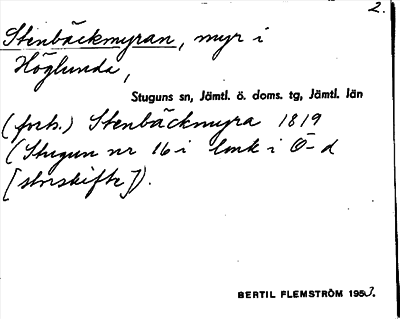 2.
Stenbäckmyran, myr i
Höglunda,
Stuguns sn, Jämtl. ö. doms. tg, Jämtl. län
(forts.) Stenbäckmyra 1819
(Stugun nr 16 i lmk i Ö-d
[storskifte]).
BERTIL FLEMSTRÖM 1953.